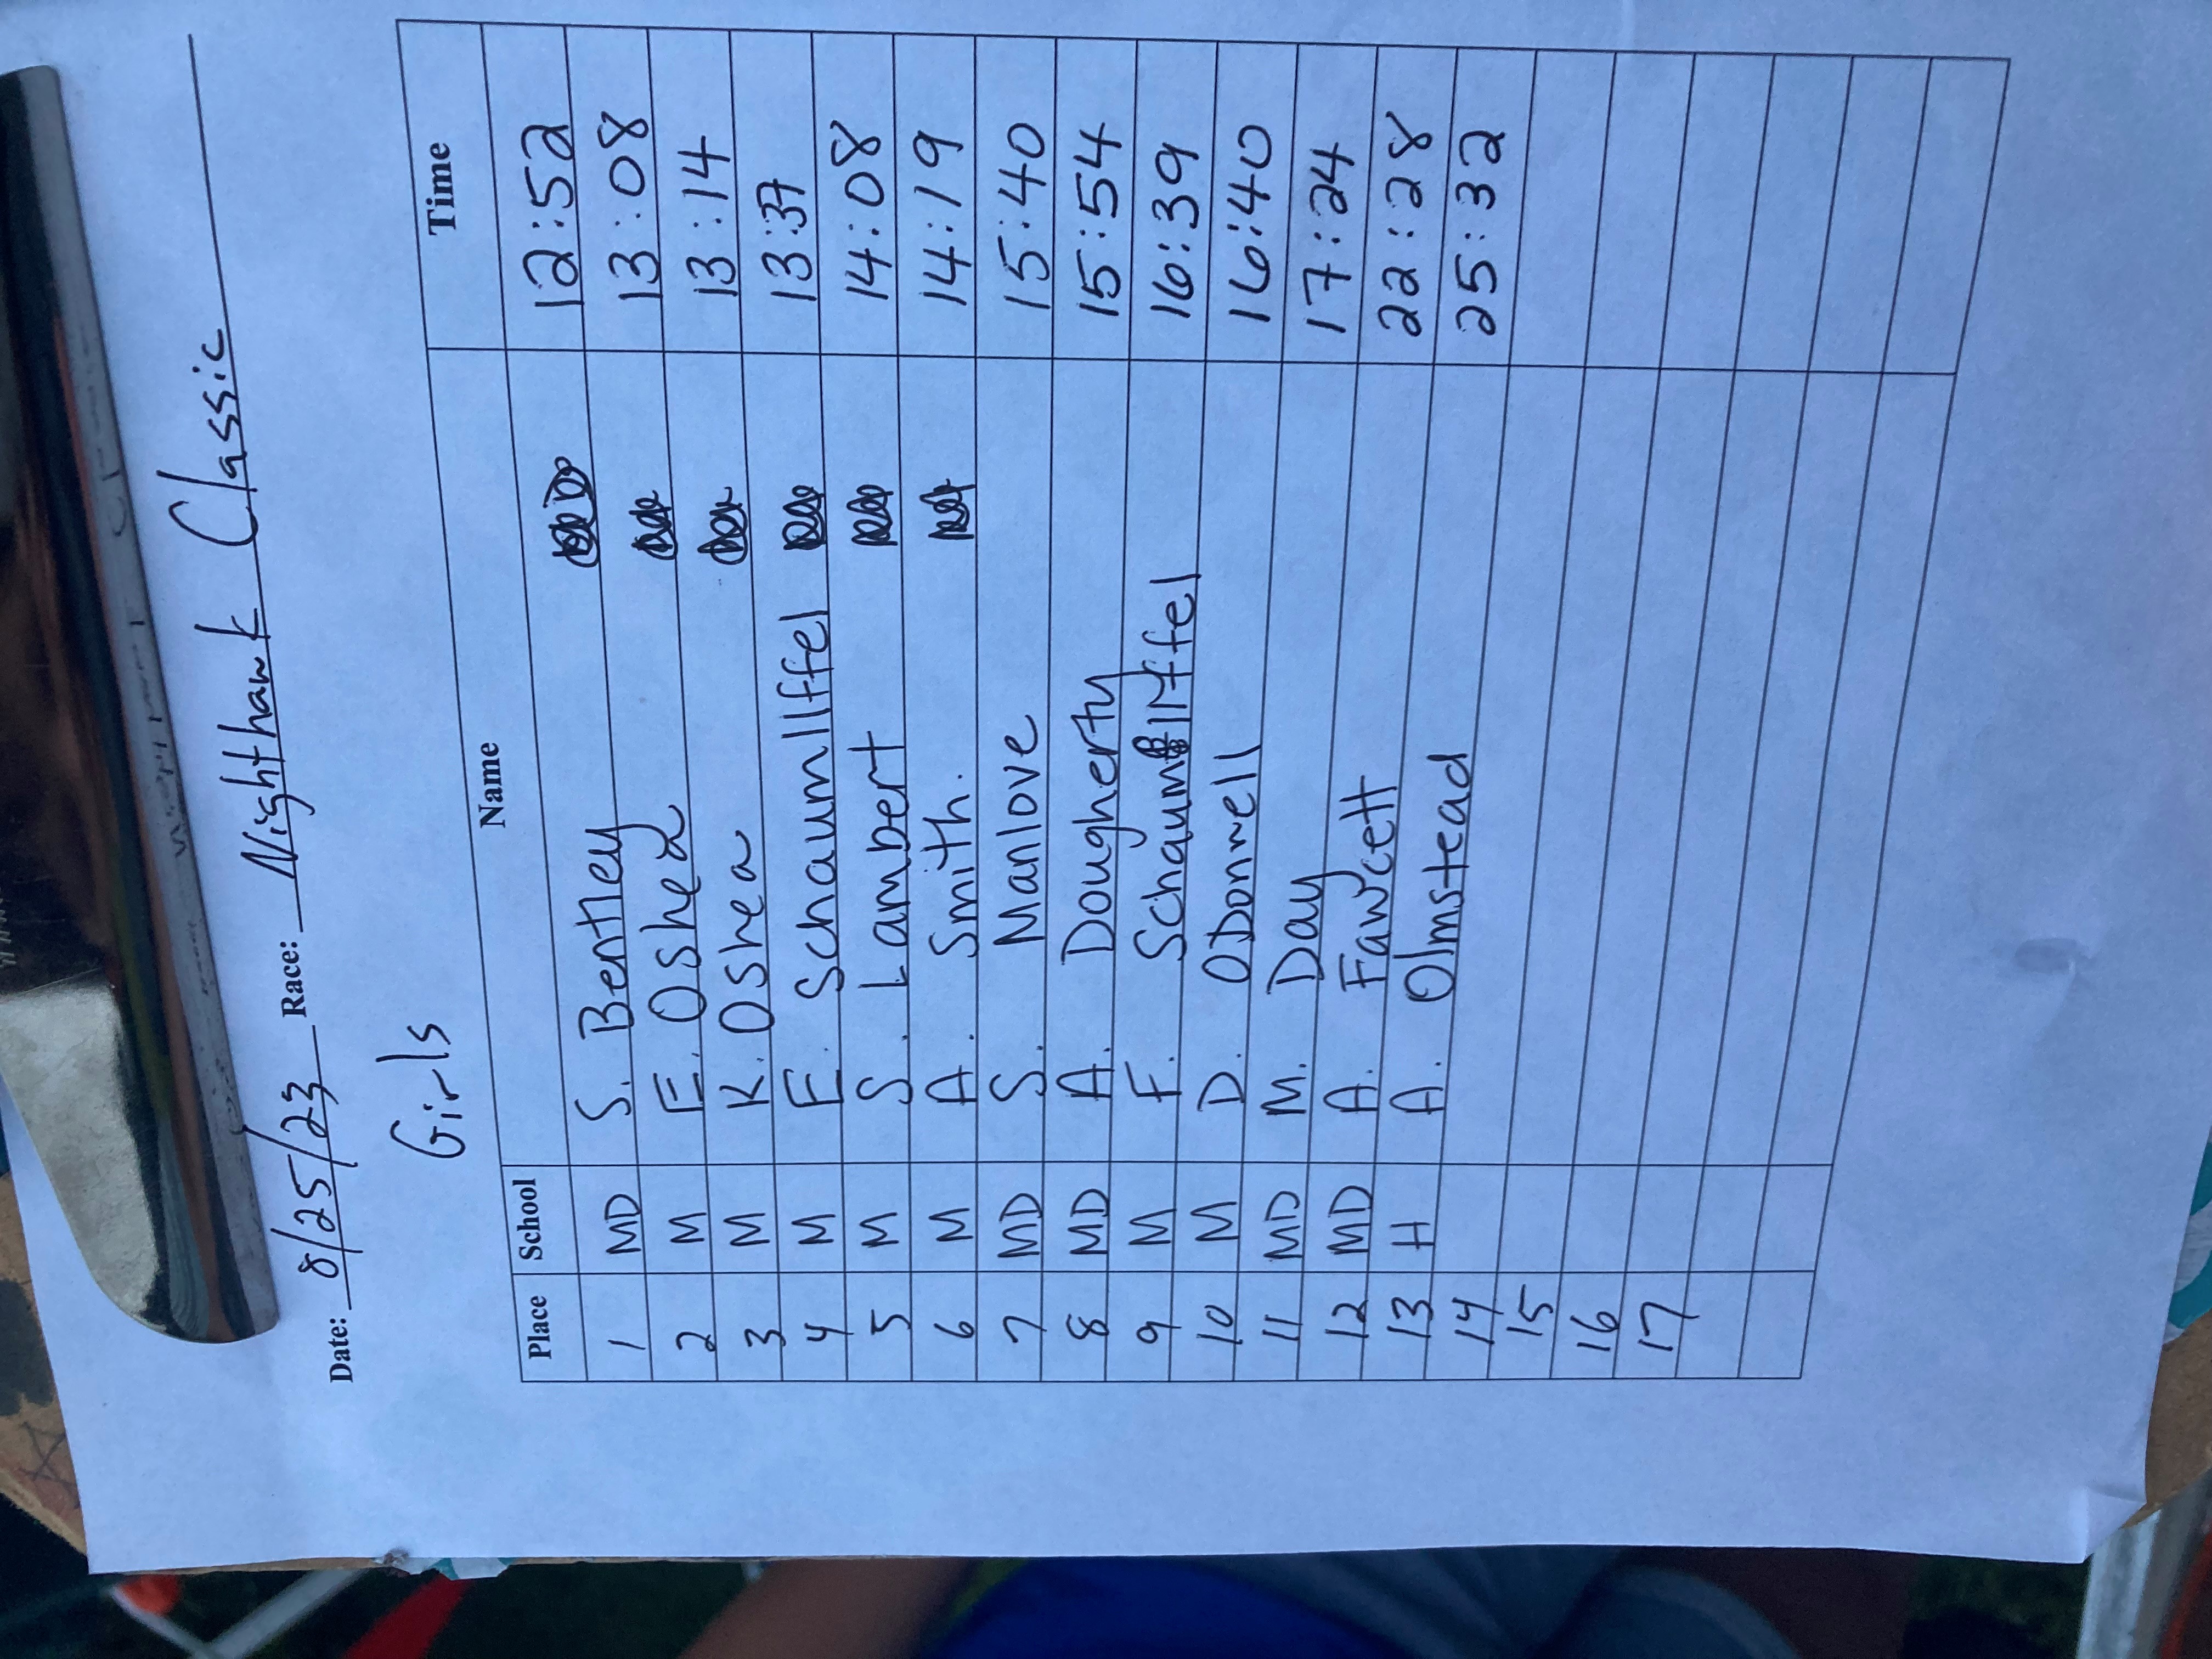 Date: 8/25/23 Race: Nighthawk Classic
Girls
Place School Name Time
1 MD S. Bentley 12:52
2 M E. Oshea 13:08
3 M K. Oshea 13:14
4 M E. Schaumlffel 13:37
5 M S. Lambert 14:08
6 M A. Smith. 14:19
7 MD S. Manlove 15:40
8 MD A. Dougherty 15:54
9 M F. 16:39
10 M D. ODonnell 16:40
11 MD M. Day 17:24
12 MD A. Fawcett 22:28
13 H A. Olmstead 25:32
14
15
16
17